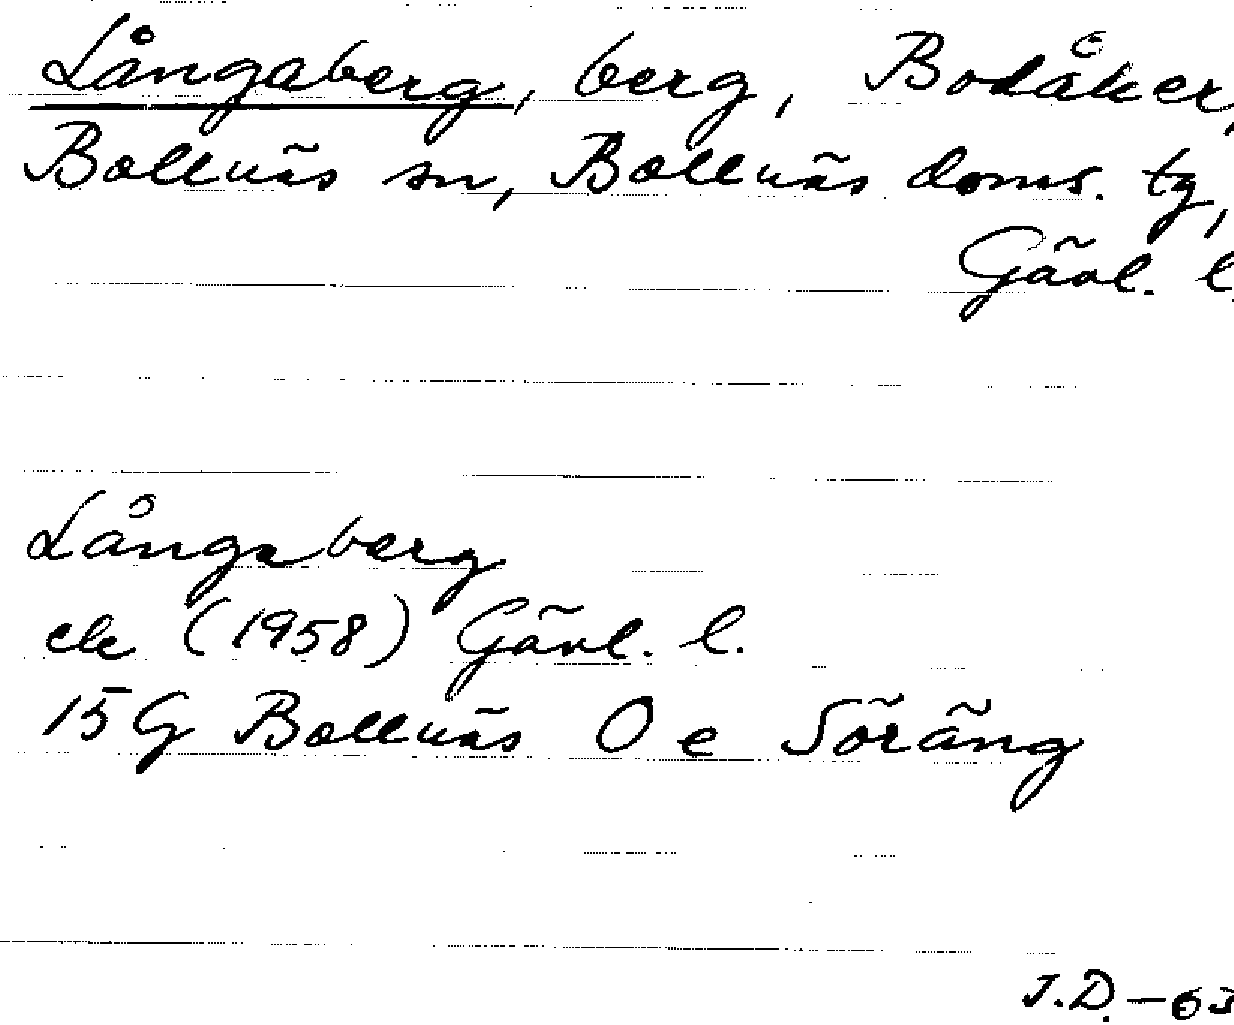 Långaberg, berg, Bodåker,
Bollnäs sn, Bollnäs doms. tg,
Gävl. l.
Långaberg
ek (1958) Gävl. l.
15 G Bollnäs O e Söräng
J.D. - 63